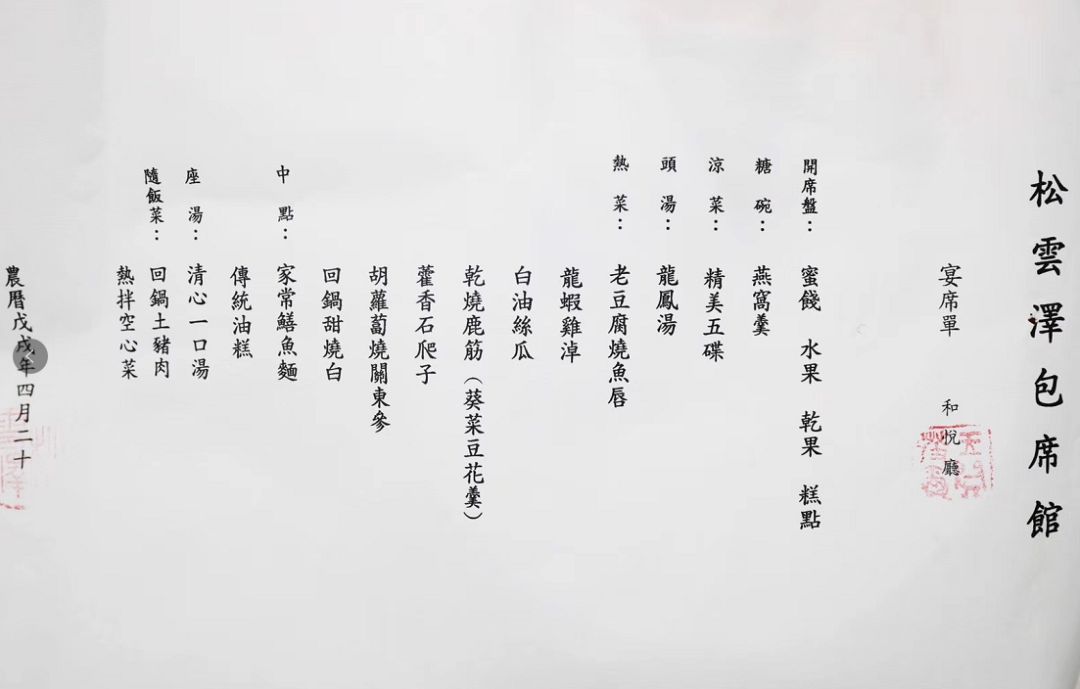 松雲澤包席館
宴席單 和悅廳
開席盤：蜜餞 水果 乾果 糕點
糖碗：燕窩羹
涼菜：精美五碟
頭湯：龍鳳湯
熱菜：老豆腐燒魚唇
龍蝦雞淖
白油絲瓜
乾燒鹿筋（葵菜豆花羹）
藿香石爬子
胡蘿蔔燒關東參
回鍋甜燒白
中點：家常鱔魚麵
傳統油糕
座湯：清心一口湯
隨飯菜：回鍋土豬肉
熱拌空心菜
農曆戊戌年四月二十